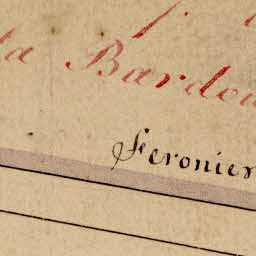 la Bardou
Feronier